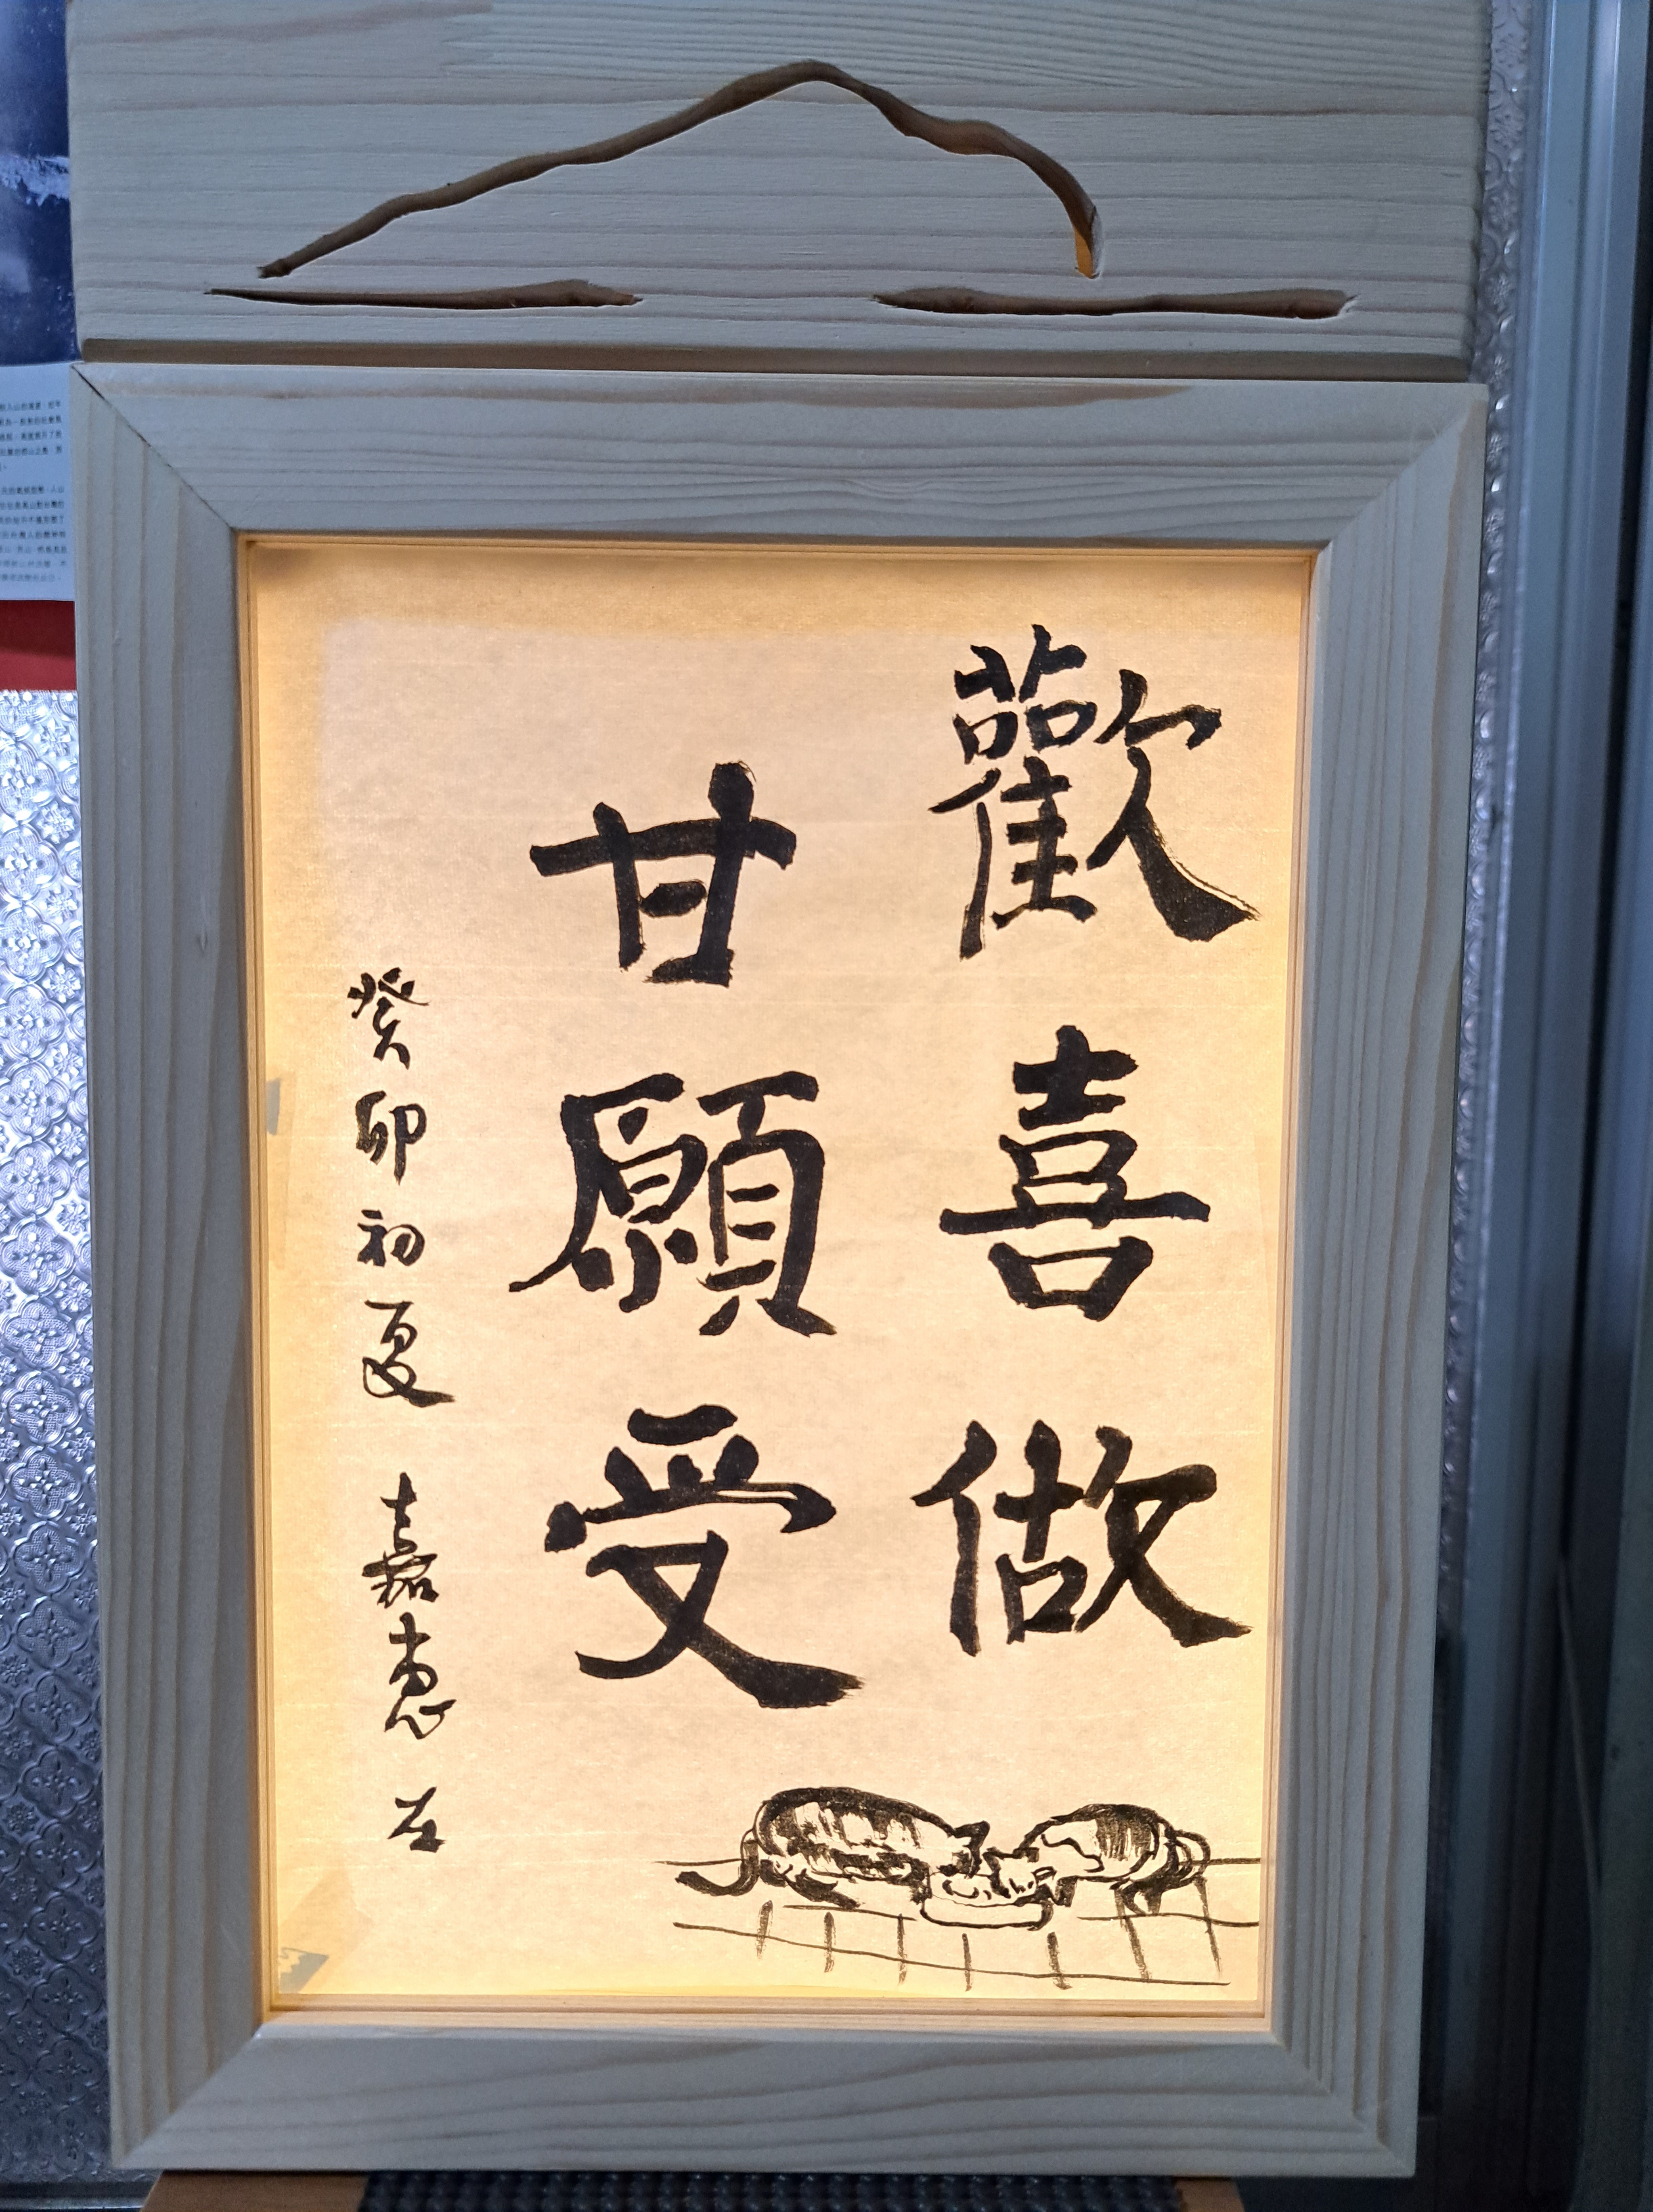 歡喜做
甘願受
癸卯初夏 嘉惠